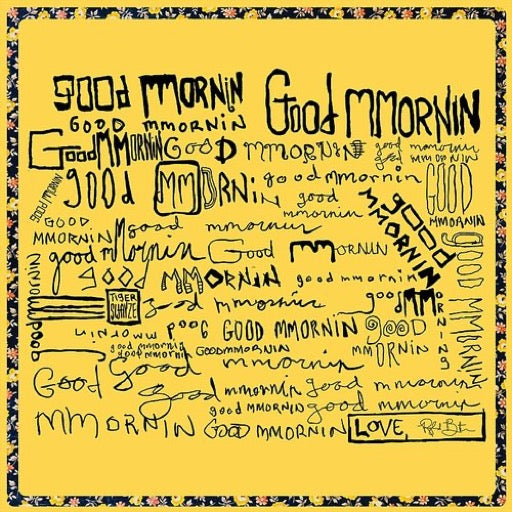 good MMORNIN Good MMORNIN
GOOD MMORNIN
Good MMORNIN GOOD MMORNIN good mmornin
good MMORNIN good mmornin GOOD MMORNIN
good MMORNIN
good mmornin
good MMORNIN
GOOD MMORNIN
good mmornin
good mMornin Good MMORNIN
GOOD MMORNIN
good MMORNIN good mmornin
good mmornin
TIGER SUNZE
good mmornin
good MMORNING
good mmornin GOOD MMORNIN
good MMORNIN
good mmornin
good mmornin GOODMMORNIN
good mmornin
Good MMORNIN
good mmornin good mmornin
good MMORNIN good mmornin
GOOD MMORNIN
LOVE,